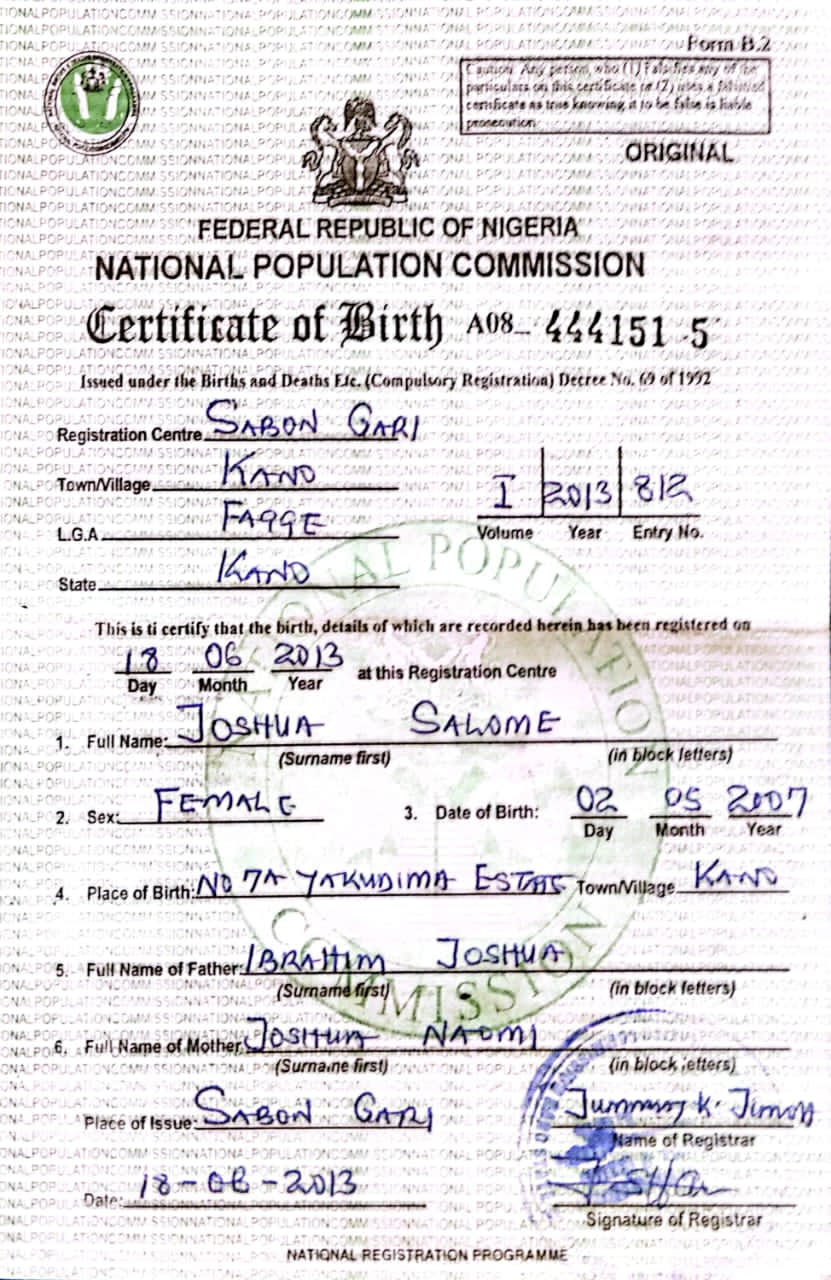 Form B.2
Caution: Any person, who (1) Falsifies any of the
particulars on this certificate or (2) uses a falsified
certificate as true knowing it to be false is liable
prosecution
ORIGINAL
FEDERAL REPUBLIC OF NIGERIA
NATIONAL POPULATION COMMISSION
Certificate of Birth A08_ 444151 5
Issued under the Births and Deaths Etc. (Compulsory Registration) Decree No. 69 of 1992
Registration Centre SABON GARI
Town/Village KANO
L.G.A FAGGE
State KANO
I 2013 812
Volume Year Entry No.
This is ti certify that the birth, details of which are recorded herein has been registered on
18 06 2013 at this Registration Centre
Day Month Year
1. Full Name: JOSHUA SALOME
(Surname first) (in block letters)
2. Sex: FEMALE 3. Date of Birth: 02 05 2007
Day Month Year
4. Place of Birth: NO 7A YAKUDIMA ESTATE Town/Village KANO
5. Full Name of Father: IBRAHIM JOSHUA
(Surname first) (in block letters)
6. Full Name of Mother JOSHUA NAOMI
(Surname first) (in block letters)
Place of Issue: SABON GARI
K. Jimoh
Name of Registrar
Date: 18-06-2013
Signature of Registrar
NATIONAL REGISTRATION PROGRAMME
NATIONAL POPULATION COMMISSION